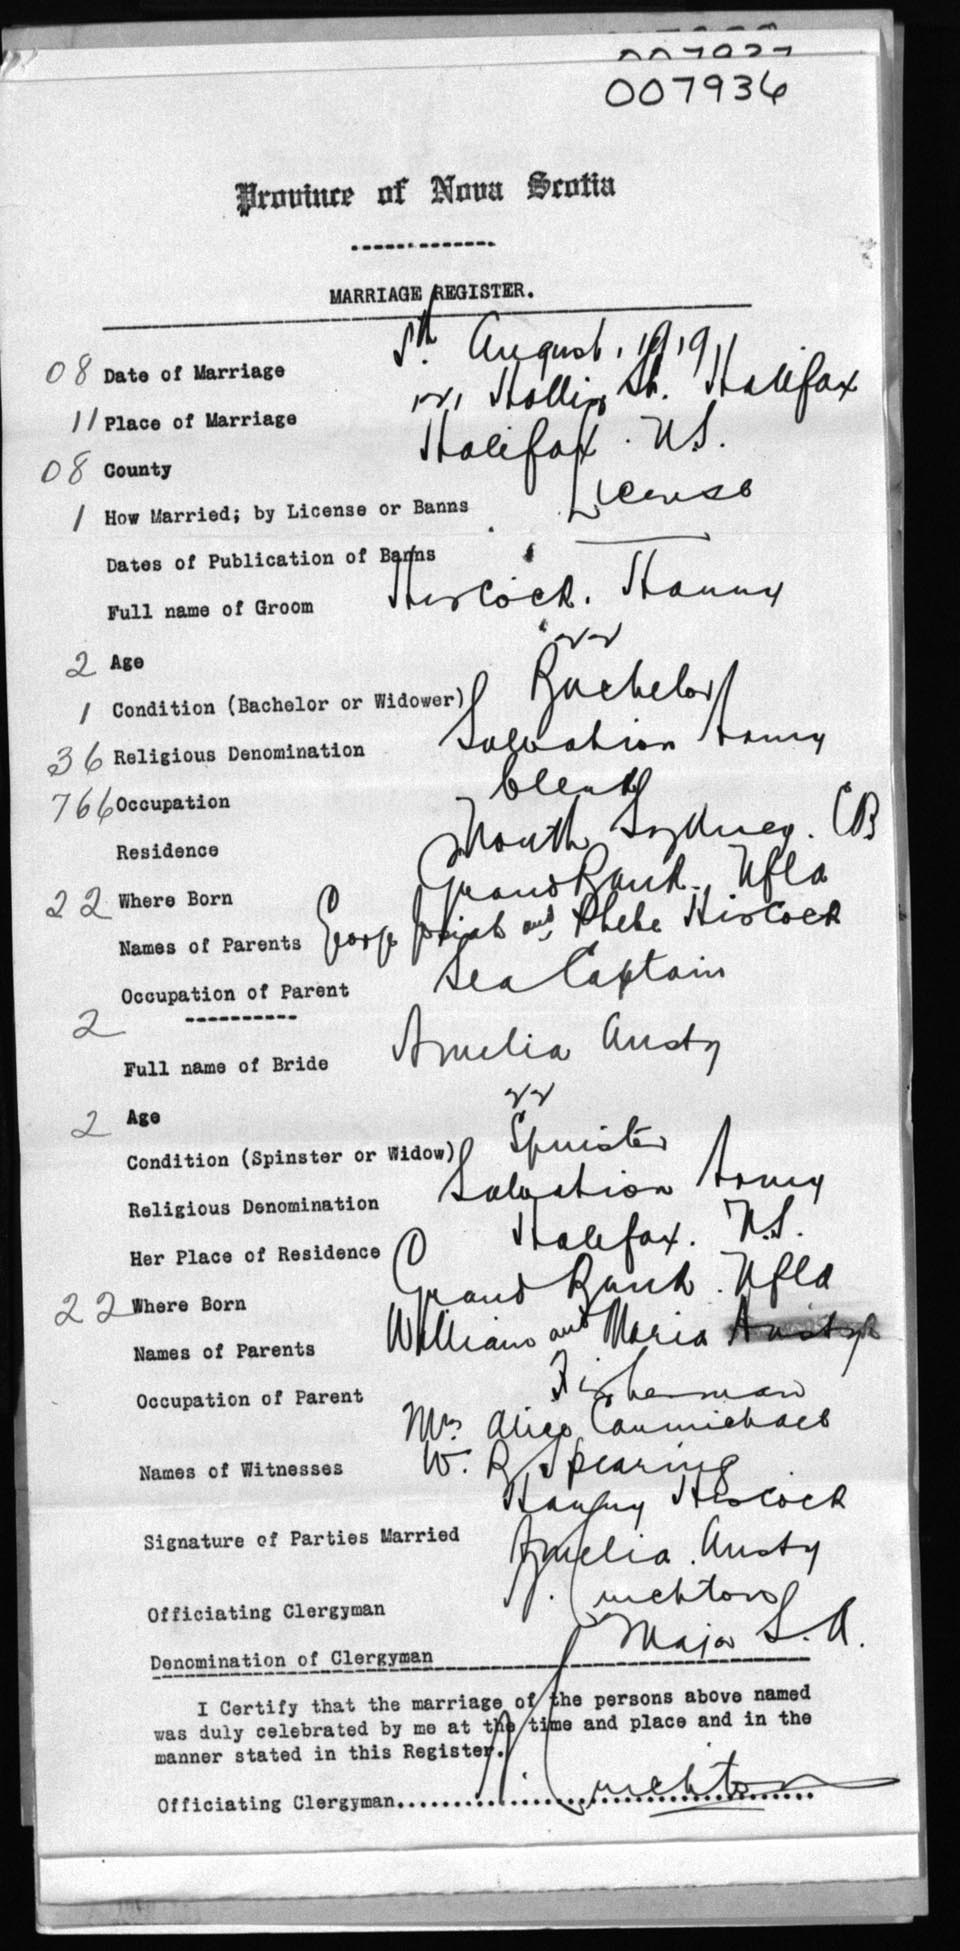 007937
007936
Province of Nova Scotia
MARRIAGE REGISTER.
08 Date of Marriage 5th. August, 1919
11 Place of Marriage 121 Hollis St. Halifax
08 County Halifax. N.S.
1 How Married; by License or Banns License
Dates of Publication of Banns
Full name of Groom Hiscock. Harry
2 Age 22
1 Condition (Bachelor or Widower) Bachelor
36 Religious Denomination Salvation Army
766 Occupation Clerk
Residence North Sydney. CB
22 Where Born Grand Bank. Nfld
Names of Parents George Josiah and Phebe Hiscock
Occupation of Parent Sea Captain
2
Full name of Bride Amelia Austy
2 Age 22
Condition (Spinster or Widow) Spinster
Religious Denomination Salvation Army
Her Place of Residence Halifax. N.S.
22 Where Born Grand Bank. Nfld
Names of Parents William and Maria
Occupation of Parent Fisherman
Mrs Alice Carmichael
Names of Witnesses W. R. Spearing
Harry Hiscock
Signature of Parties Married Amelia. Austy
Officiating Clergyman Crichton
Denomination of Clergyman Major S.A.
I Certify that the marriage of the persons above named
was duly celebrated by me at the time and place and in the
manner stated in this Register.
Officiating Clergyman Crichton